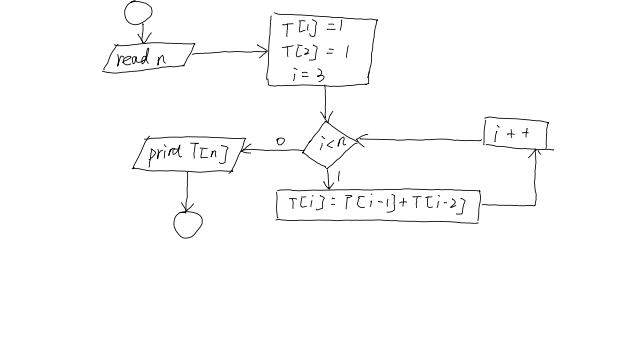 read n
T[1] = 1
T[2] = 1
i = 3
i<n
0
print T[n]
1
T[i] = T[i-1] + T[i-2]
i++